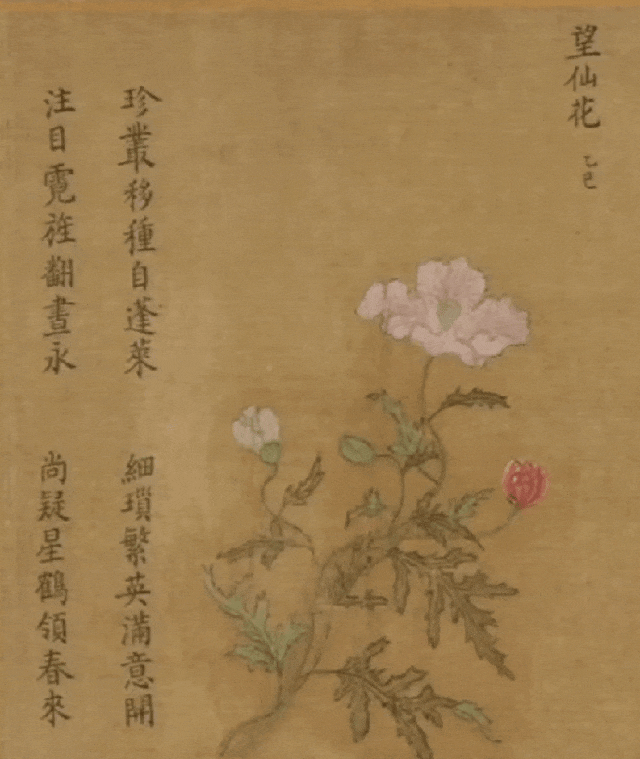 望仙花
乙巳
珍叢移種自蓬萊
細瑣繁英滿意開
注目霓旌翻晝永
尚疑星鶴領春來